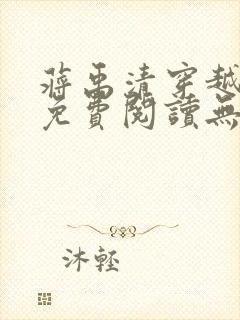 蔣禹清穿越
免費閱讀無
沐輕